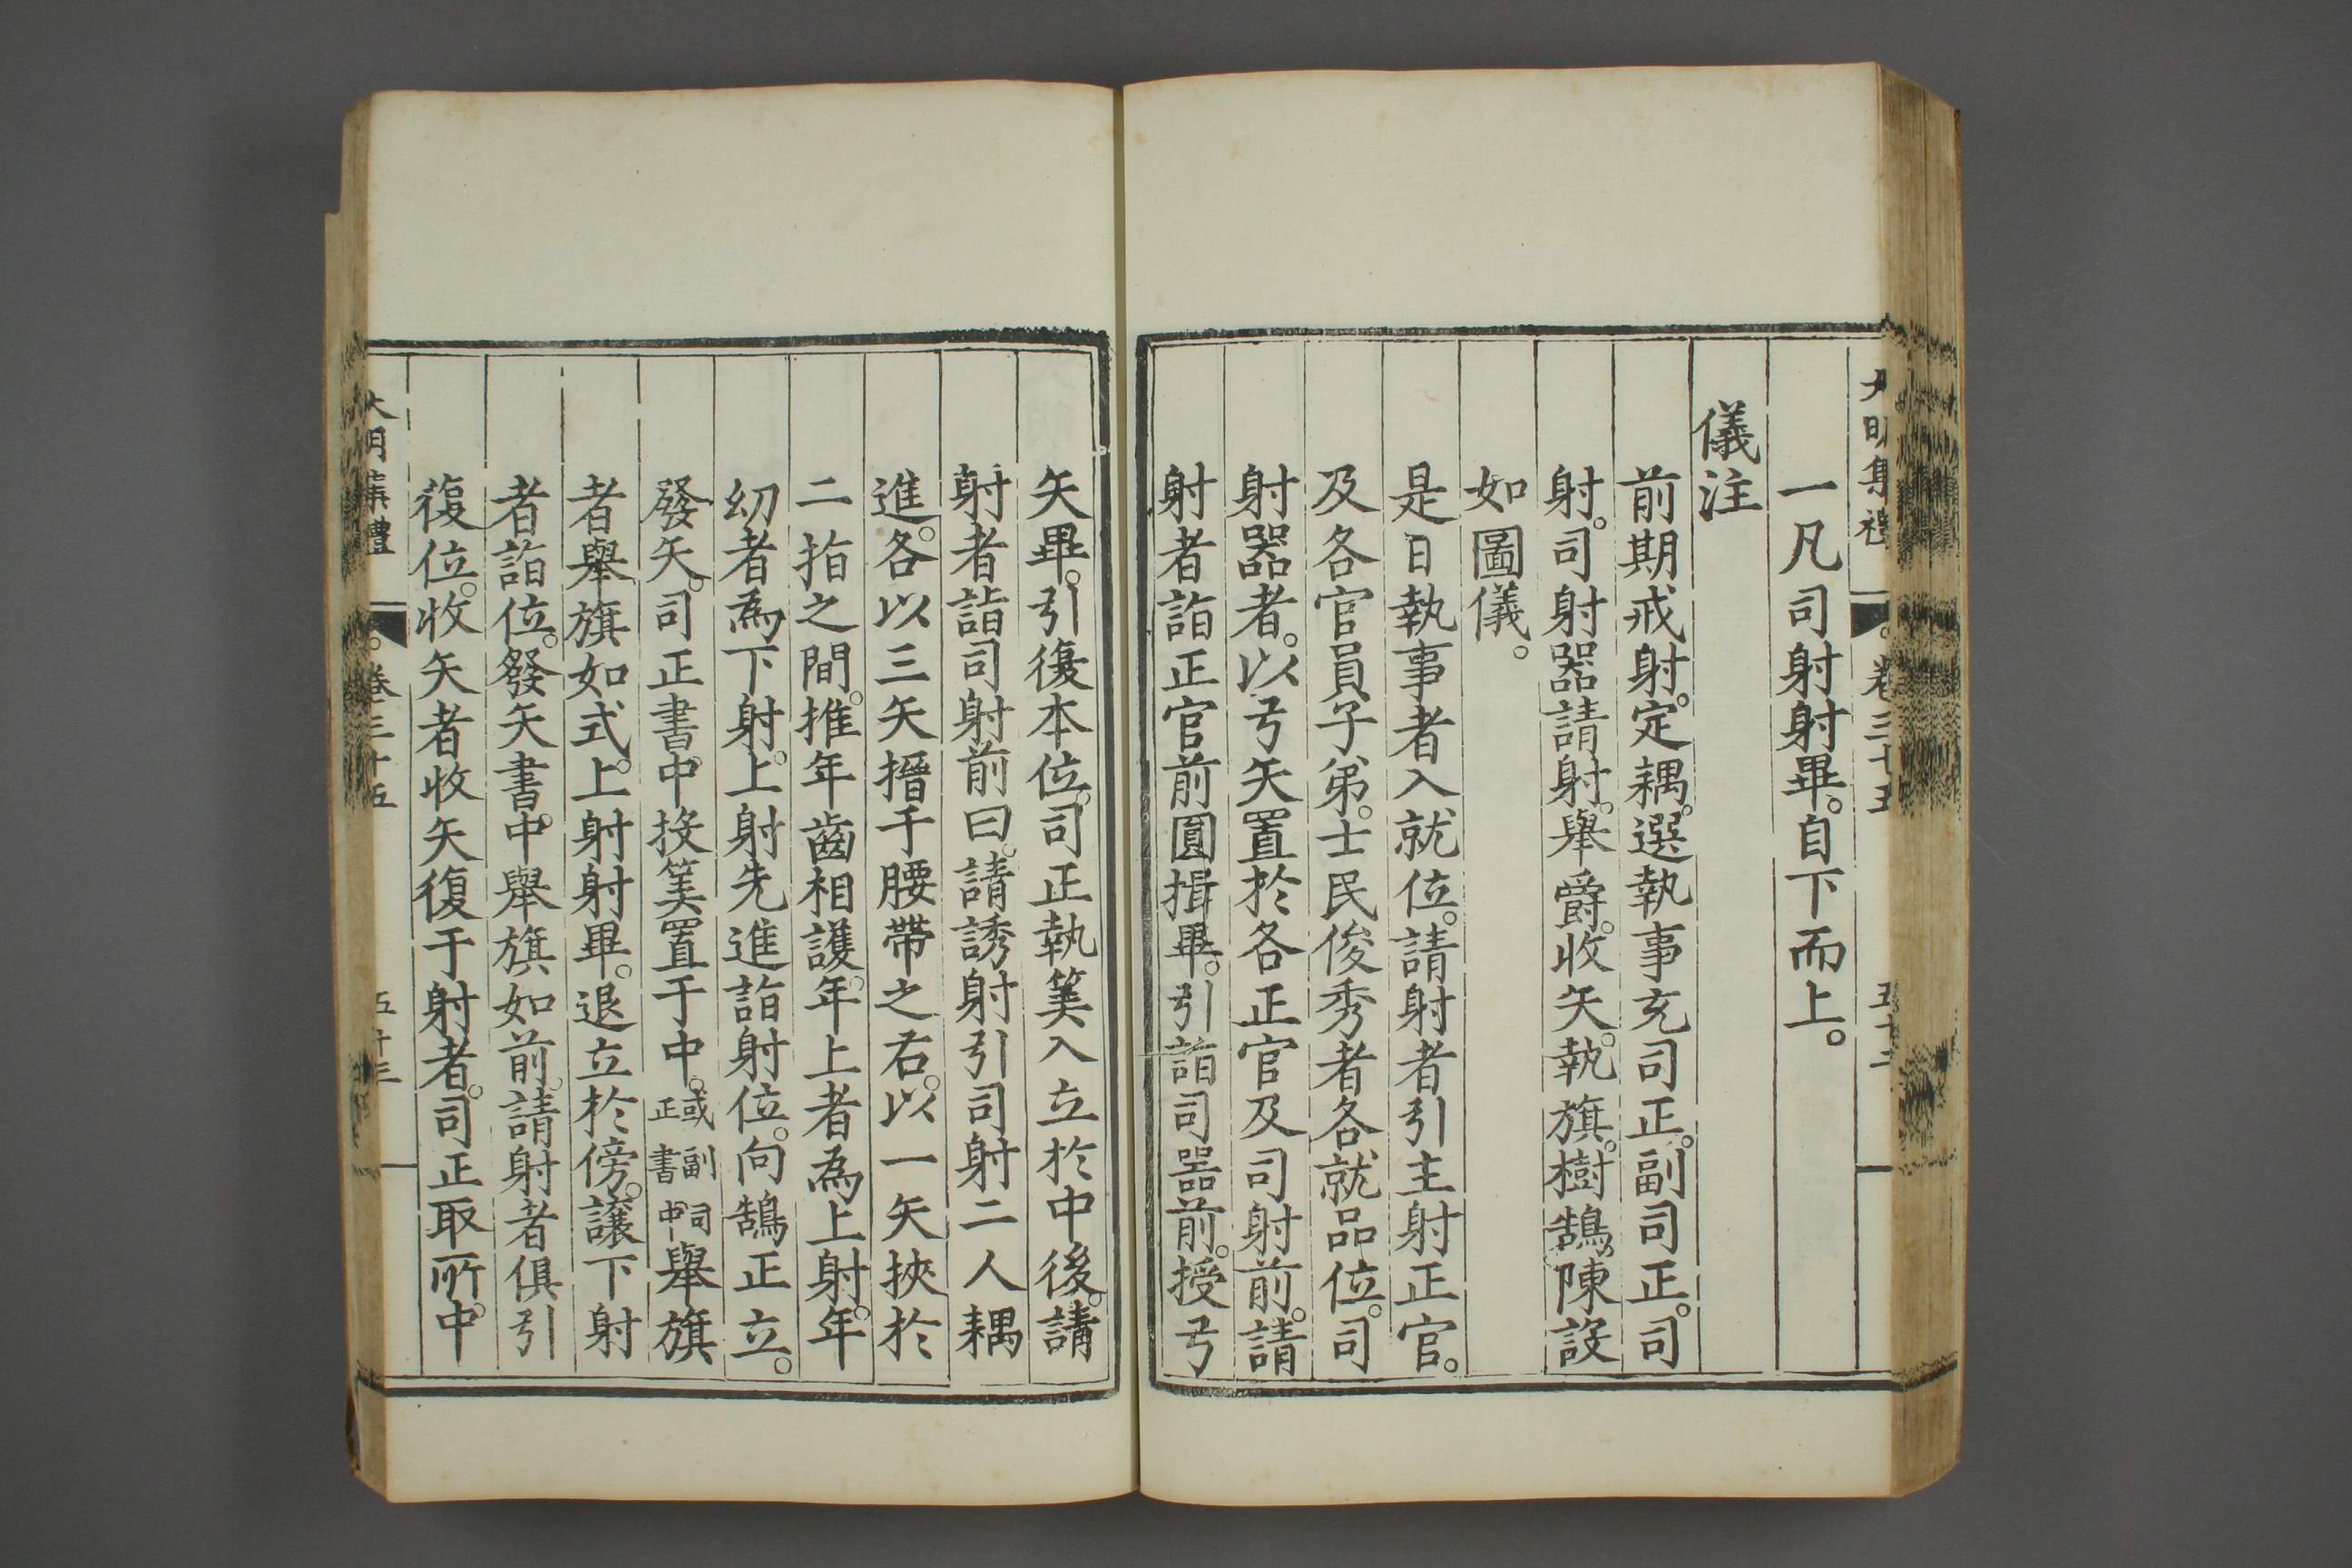 大明集禮 卷三十五 五十二
一凡司射射畢。自下而上。
儀注
前期戒射。定耦。選執事充司正。副司正。司
射。司射器請射。舉爵。收矢。執旗。樹鵠。陳設
如圖儀。
是日執事者入就位。請射者引主射正官。
及各官員子弟。士民俊秀者各就品位。司
射器者。以弓矢置於各正官及司射前。請
射者詣正官前圓揖畢。引詣司器前。授弓
矢畢。引復本位。司正執筭入立於中後。請
射者詣司射前曰。請誘射引司射二人耦
進。各以三矢搢于腰帶之右。以一矢挾於
二指之間。推年齒相讓。年上者為上射。年
幼者為下射。上射先進詣射位。向鵠正立。
發矢。司正書中投筭置于中。或副司正書中舉旗
者舉旗如式。上射射畢。退立於傍。讓下射
者詣位。發矢書中。舉旗如前。請射者俱引
復位。收矢者收矢復于射者。司正取所中
大明集禮 卷三十五 五十三